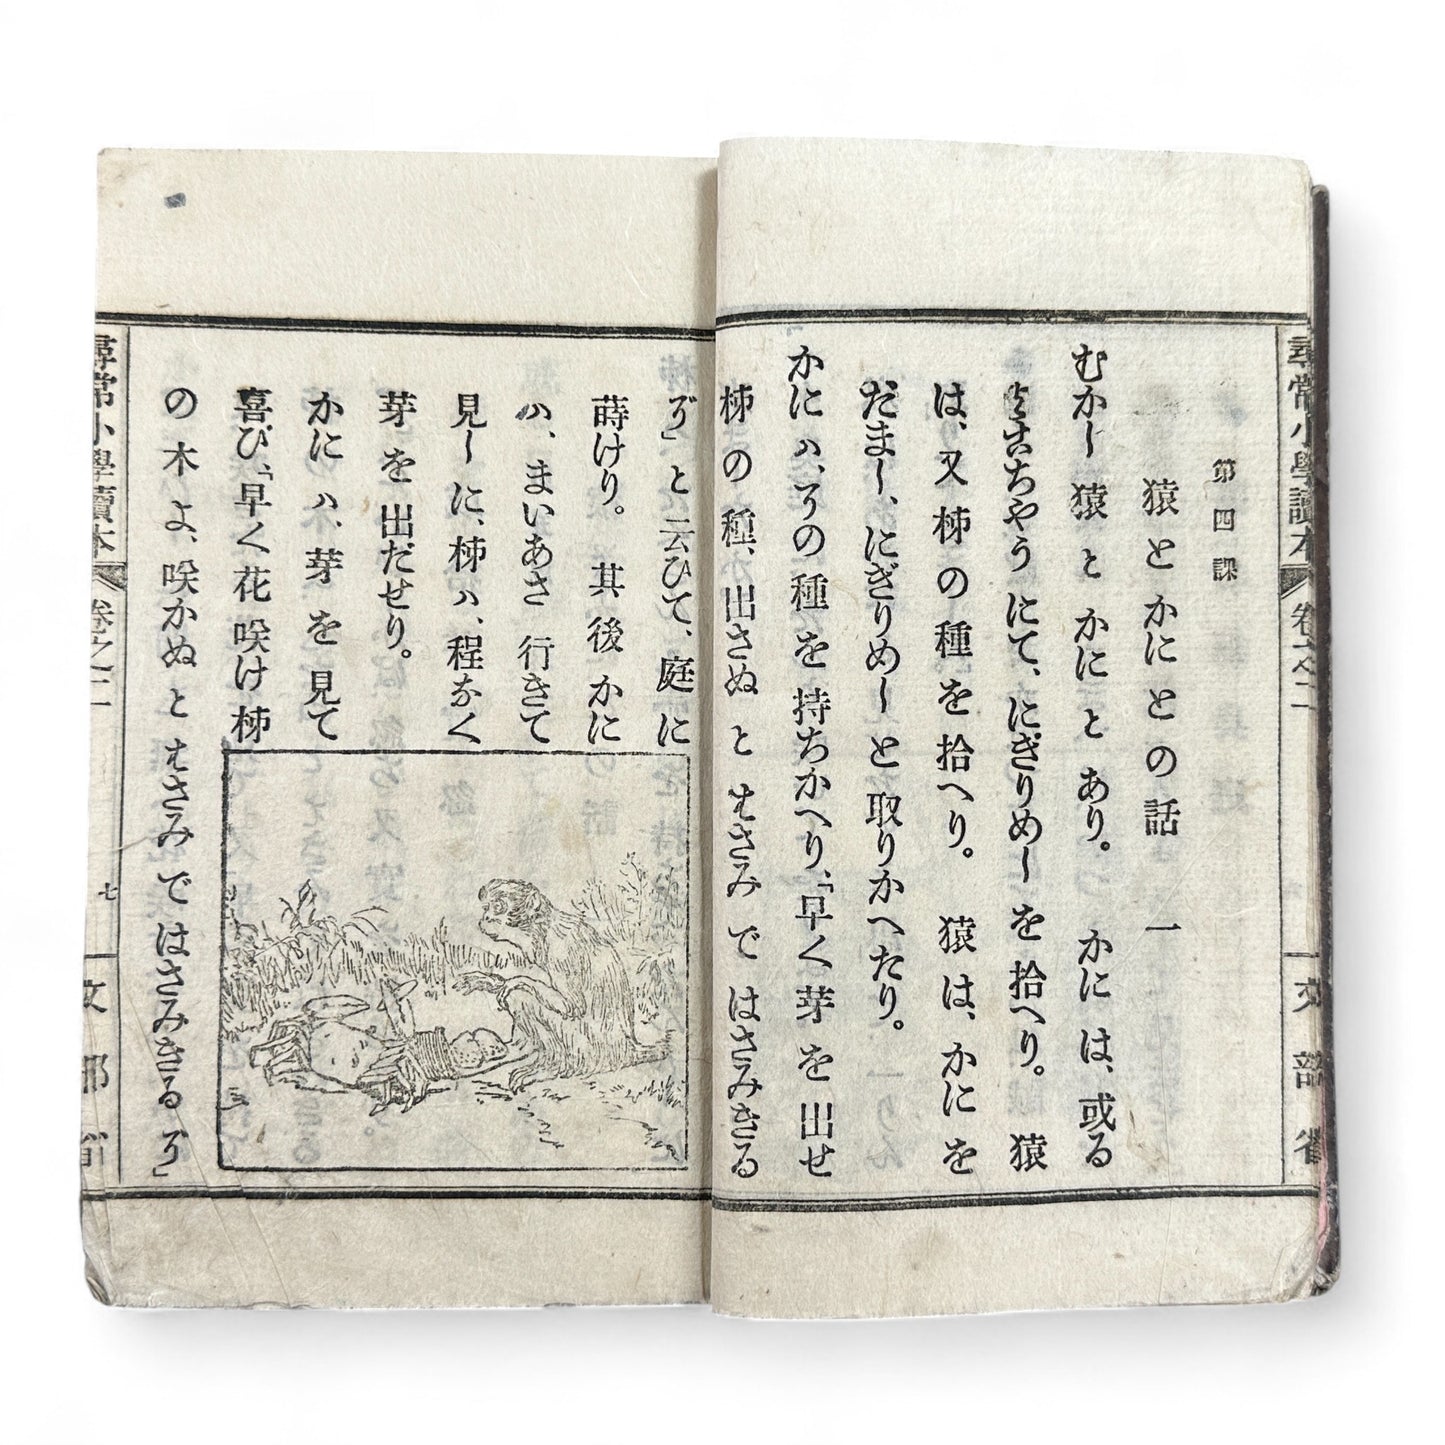 尋常小學讀本 卷之二 文部省
第四課
猿とかにとの話 一
むかし猿とかにとあり。かには、或る
ところちやうにて、にぎりめしを拾へり。猿
は、又柹の種を拾へり。猿は、かにを
だまし、にぎりめしと取りかへたり。
かにハ、その種を持ちかへり、「早く芽を出せ
柹の種、出さぬとはさみではさみきる
ぞ」と云ひて、庭に
蒔けり。其後かに
ハ、まいあさ行きて
見しに、柹ハ、程なく
芽を出だせり。
かにハ、芽を見て
喜び、「早く花咲け柹
の木よ、咲かぬとはさみではさみきるぞ」
尋常小學讀本 卷之二 七 文部省